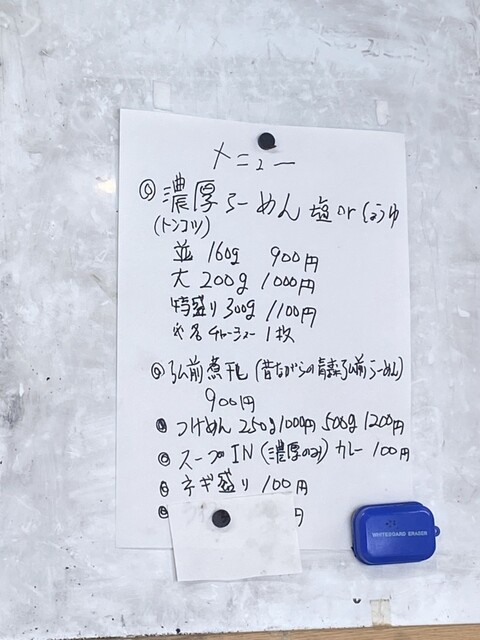 メニュー
◎濃厚らーめん 塩orしょうゆ
(トンコツ)
並 160g 900円
大 200g 1000円
特盛り300g 1100円
※各チャーシュー1枚
◎弘前煮干し(昔ながらの青森弘前らーめん)
900円
◎つけめん 250g1000円 500g1200円
◎スープIN(濃厚のみ)カレー 100円
◎ネギ盛り 100円
円
WHITEBOARD ERASER